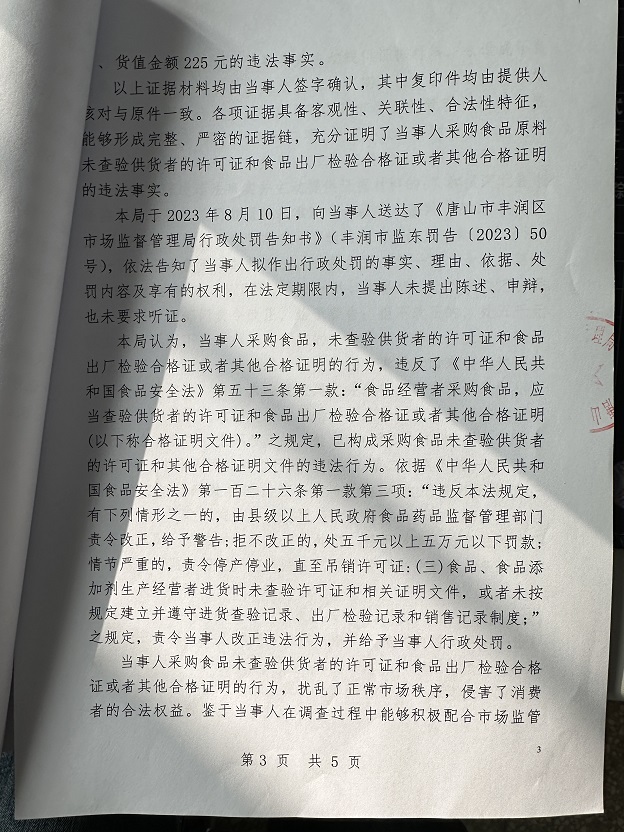 、货值金额225元的违法事实。
以上证据材料均由当事人签字确认，其中复印件均由提供人
核对与原件一致。各项证据具备客观性、关联性、合法性特征，
能够形成完整、严密的证据链，充分证明了当事人采购食品原料
未查验供货者的许可证和食品出厂检验合格证或者其他合格证明
的违法事实。
本局于2023年8月10日，向当事人送达了《唐山市丰润区
市场监督管理局行政处罚告知书》（丰润市监东罚告〔2023〕50
号），依法告知了当事人拟作出行政处罚的事实、理由、依据、处
罚内容及享有的权利，在法定期限内，当事人未提出陈述、申辩，
也未要求听证。
本局认为，当事人采购食品，未查验供货者的许可证和食品
出厂检验合格证或者其他合格证明的行为，违反了《中华人民共
和国食品安全法》第五十三条第一款：“食品经营者采购食品，应
当查验供货者的许可证和食品出厂检验合格证或者其他合格证明
(以下称合格证明文件)。”之规定，已构成采购食品未查验供货者
的许可证和其他合格证明文件的违法行为。依据《中华人民共和
国食品安全法》第一百二十六条第一款第三项：“违反本法规定，
有下列情形之一的，由县级以上人民政府食品药品监督管理部门
责令改正，给予警告;拒不改正的，处五千元以上五万元以下罚款;
情节严重的，责令停产停业，直至吊销许可证:(三)食品、食品添
加剂生产经营者进货时未查验许可证和相关证明文件，或者未按
规定建立并遵守进货查验记录、出厂检验记录和销售记录制度;”
之规定，责令当事人改正违法行为，并给予当事人行政处罚。
当事人采购食品未查验供货者的许可证和食品出厂检验合格
证或者其他合格证明的行为，扰乱了正常市场秩序，侵害了消费
者的合法权益。鉴于当事人在调查过程中能够积极配合市场监管
第3页 共5页
3